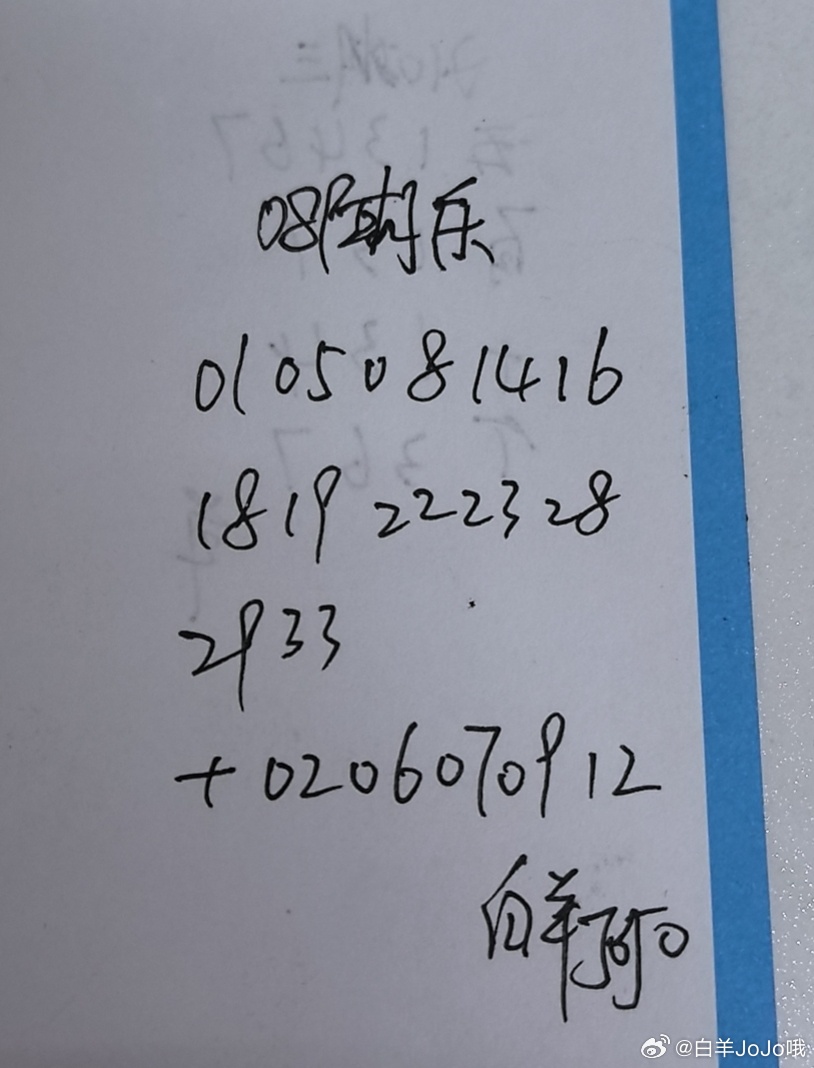 08期乐
01 05 08 14 16
18 19 22 23 28
29 33
+ 02 06 07 09 12
白羊JoJo
@白羊JoJo哦